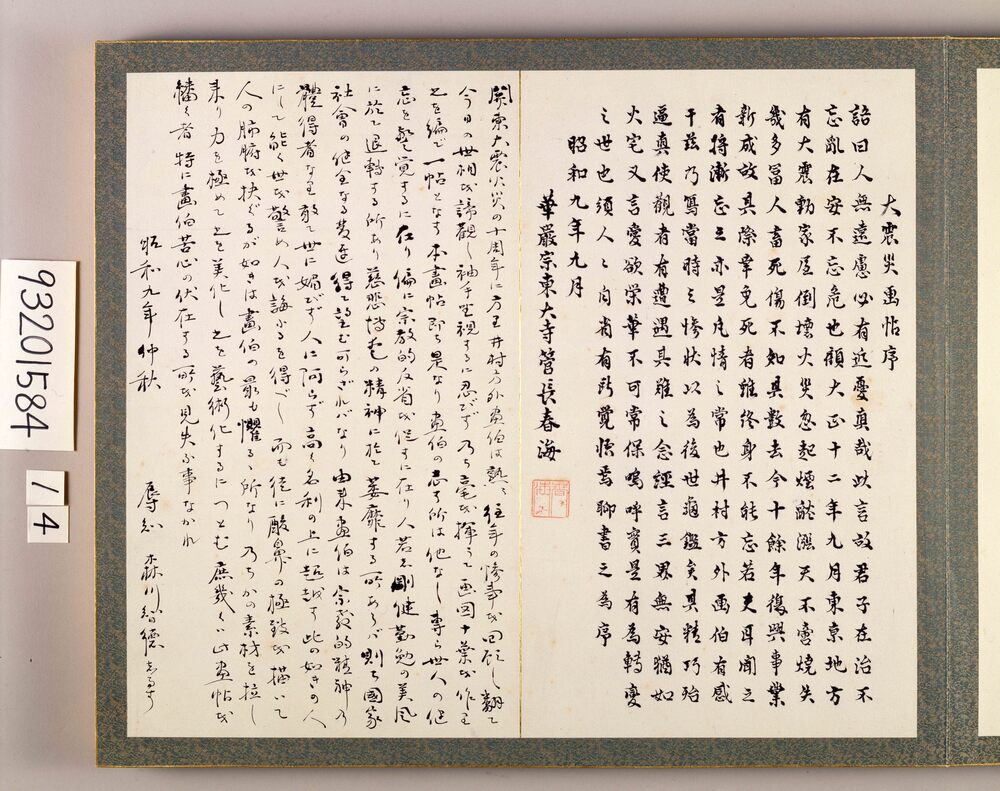 大震災画帖序
語曰人無遠慮必有近憂真哉此言故君子在治不
忘乱在安不忘危也顧大正十二年九月東京地方
有大震動家屋倒壊火災忽起煙燄漲天不啻焼失
幾多冨人畜死傷不知其数去今十餘年復興事業
新成故其際幸免死者雖終身不能忘若夫耳聞之
有将漸忘之亦是凡情之常也井村方外画伯有感
于茲乃写當時之惨状以為後世龜鑑矣其精巧殆
逼真使觀者有遭遇其難之念經言三界無安猶如
火宅又言愛欲栄華不可常保嗚呼實是有為轉変
之世也須人々自省有所覺悟焉聊書之為序
昭和九年九月
華厳宗東大寺管長春海
関東大震火災の十周年に方り井村方外画伯は熱々往年の惨事を回顧し飜て
今日の世相を諦観し袖手坐視するに忍びず乃ち毫を揮うて画図十葉を作り
之を編で一帖となす本畫帖即ち是なり画伯の志す所は他なし専ら世人の健
忘を警覚するに在り偏に宗教的反省を促すに在り人若し剛健勤勉の美風
に於て退轉する所あり慈悲博愛の精神に於て萎靡する所あらバ則ち國家
社會の健全なる発達得て望む可らざれバなり由来画伯は宗教的精神の
體得者なり敢て世に媚びず人に阿らず高く名利の上に超越す此の如きの人
にして能く世を警め人を誨ふるを得べし而も徒に酸鼻の極致を描いて
人の肺腑を抉ぐるが如きは畫伯の最も懼るゝ所なり乃ちかの素材を拉し
来り力を極めて之を美化し之を藝術化するにつとむ庶幾くハ此画帖を
繙く者特に畫伯苦心の伏在する所を見失ふ事なかれ
昭和九年仲秋
辱知 森川智徳しるす
93201584
1
4